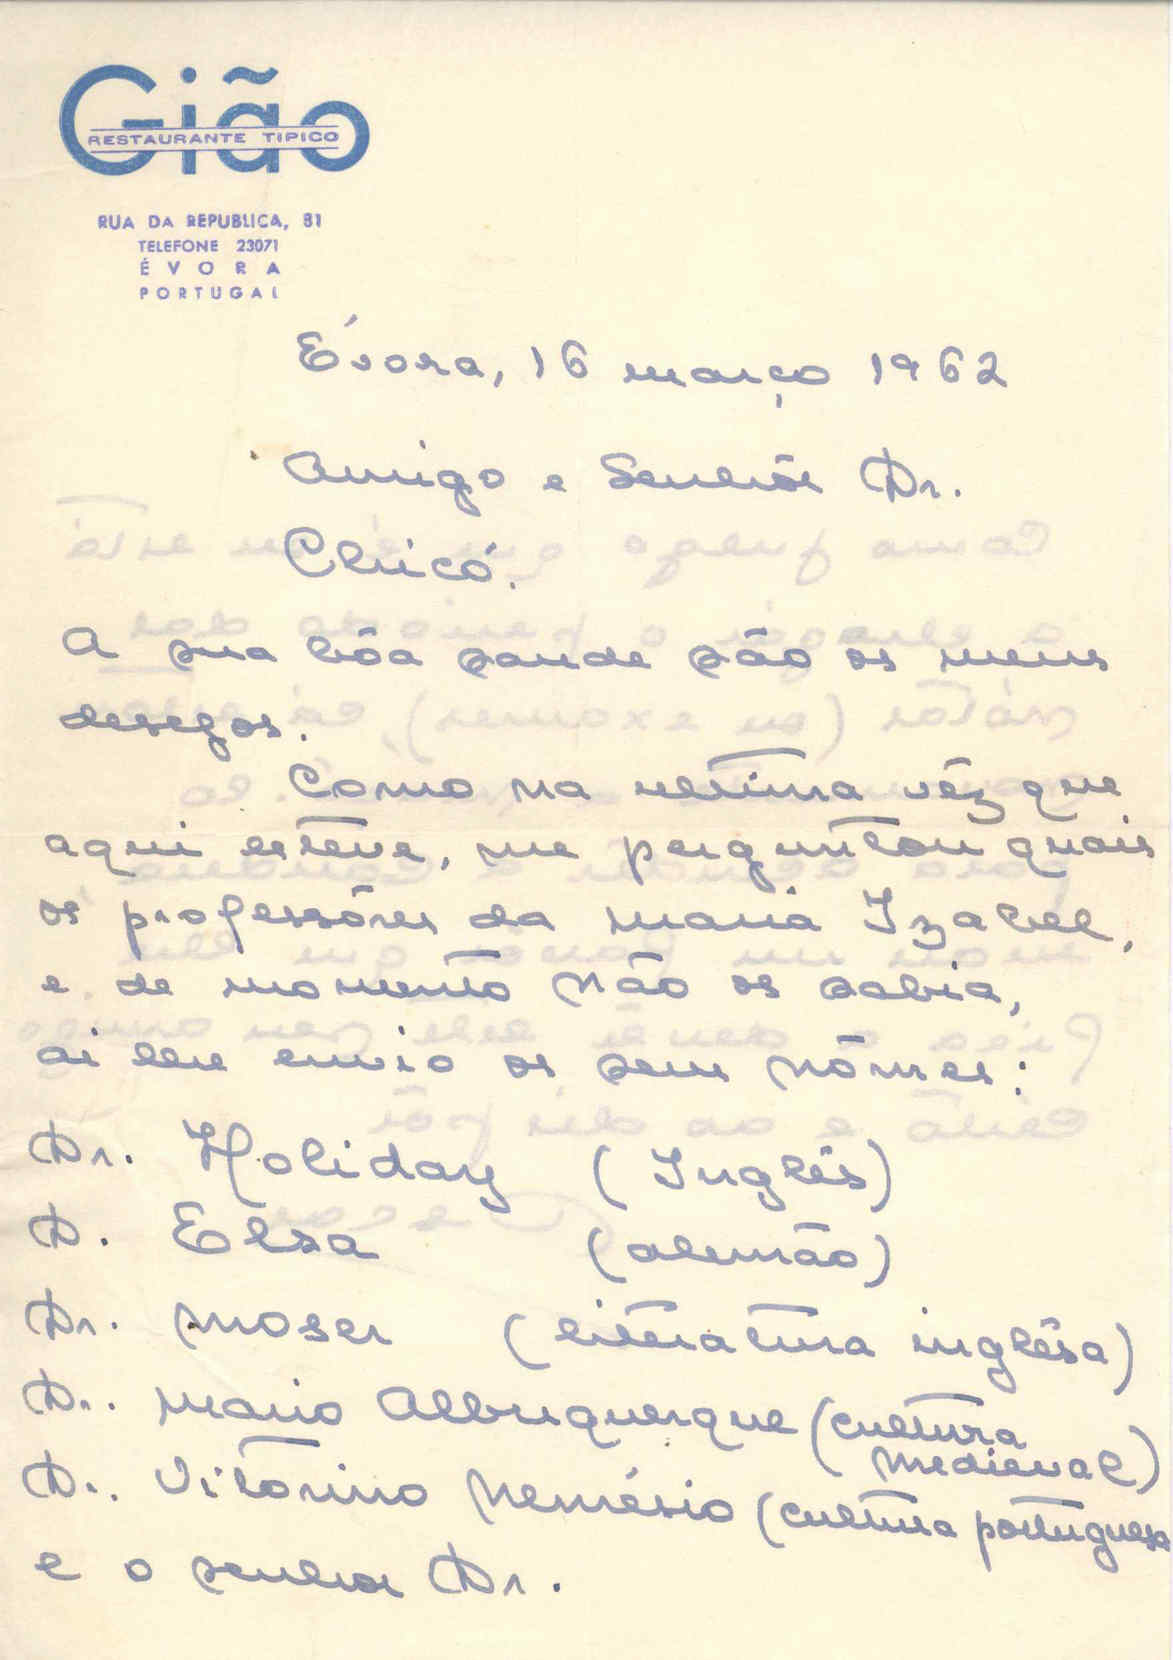 Gião
RESTAURANTE TIPICO
RUA DA REPUBLICA, 81
TELEFONE 23071
ÉVORA
PORTUGAL
Évora, 16 março 1962
Amigo e Senhôr Dr.
Chicó.
A sua bôa saude são os meus
desegos.
Como na ultima vêz que
aqui esteve, me perguntou quais
os professôres da Maria Izabel,
e de momento não os sabia,
ai lhe envio os seus nômes:
Dr. Holiday (Inglês)
D. Elsa (alemão)
Dr. Moser (literatura inglêsa)
Dr. Mario Albuquerque (cultura
medieval)
Dr. Vitorino Nemésio (cultura portuguesa
e o senhor Dr.